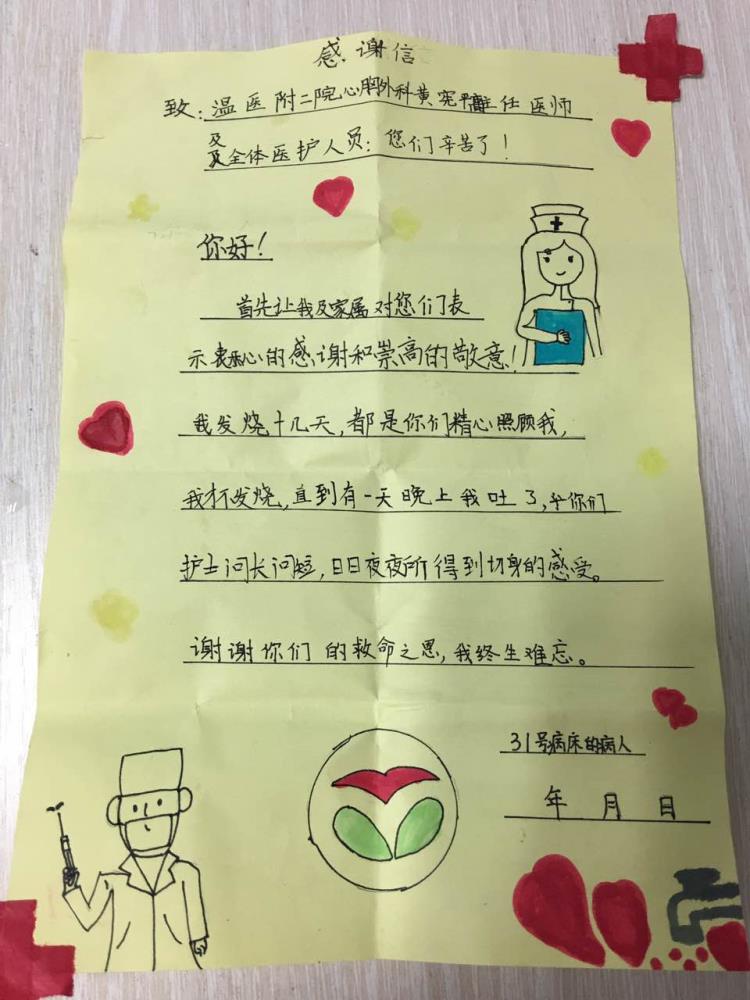 感谢信
致：温医附二院心胸外科黄宪平主任医师
及
及全体医护人员：您们辛苦了！
你好！
首先让我及家属对您们表
示衷心的感谢和崇高的敬意！
我发烧十几天，都是你们精心照顾我，
我才不发烧，直到有一天晚上我吐了，你们
护士问长问短，日日夜夜所得到切身的感受。
谢谢你们的救命之恩，我终生难忘。
31号病床的病人
年 月 日